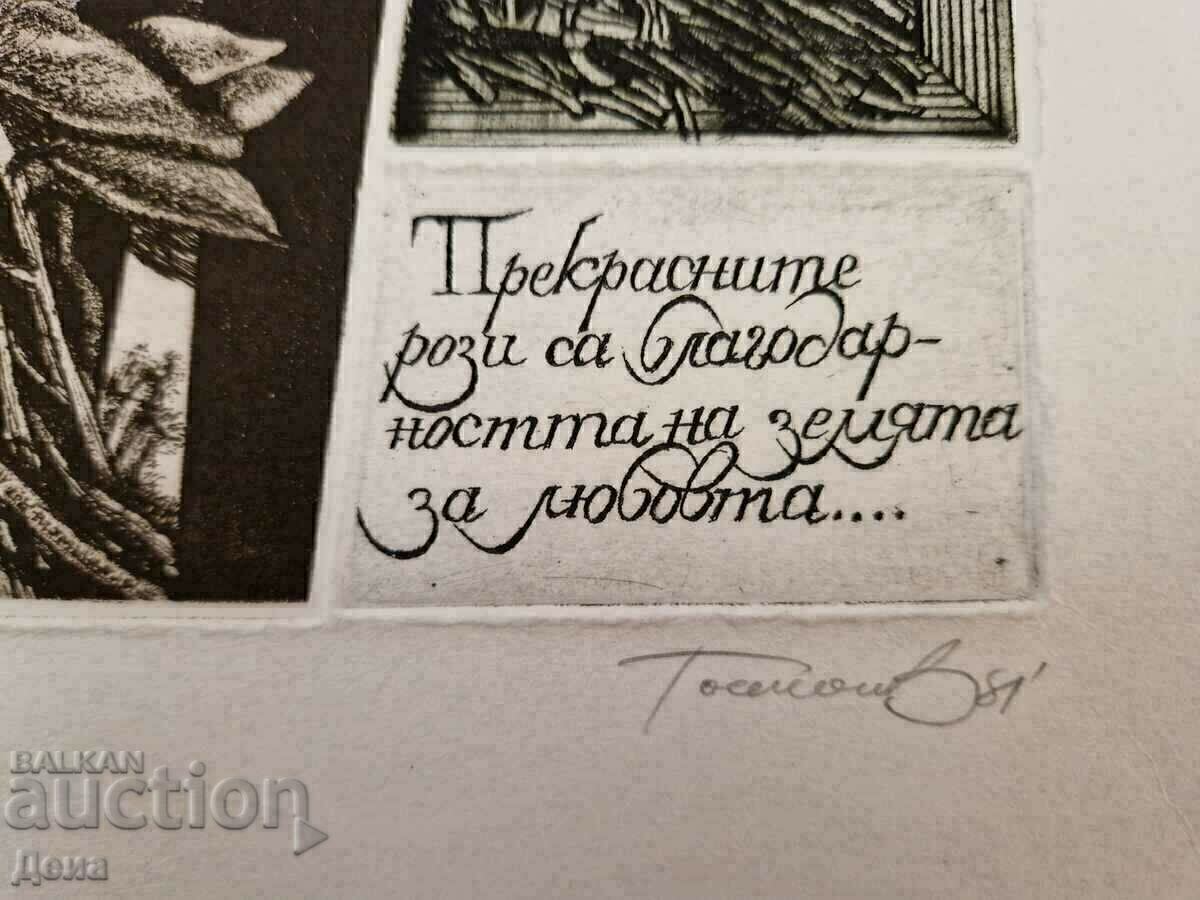 Прекрасните
рози са благодар-
ността на земята
за любовта....
81'
BALKAN
auction
Деиа